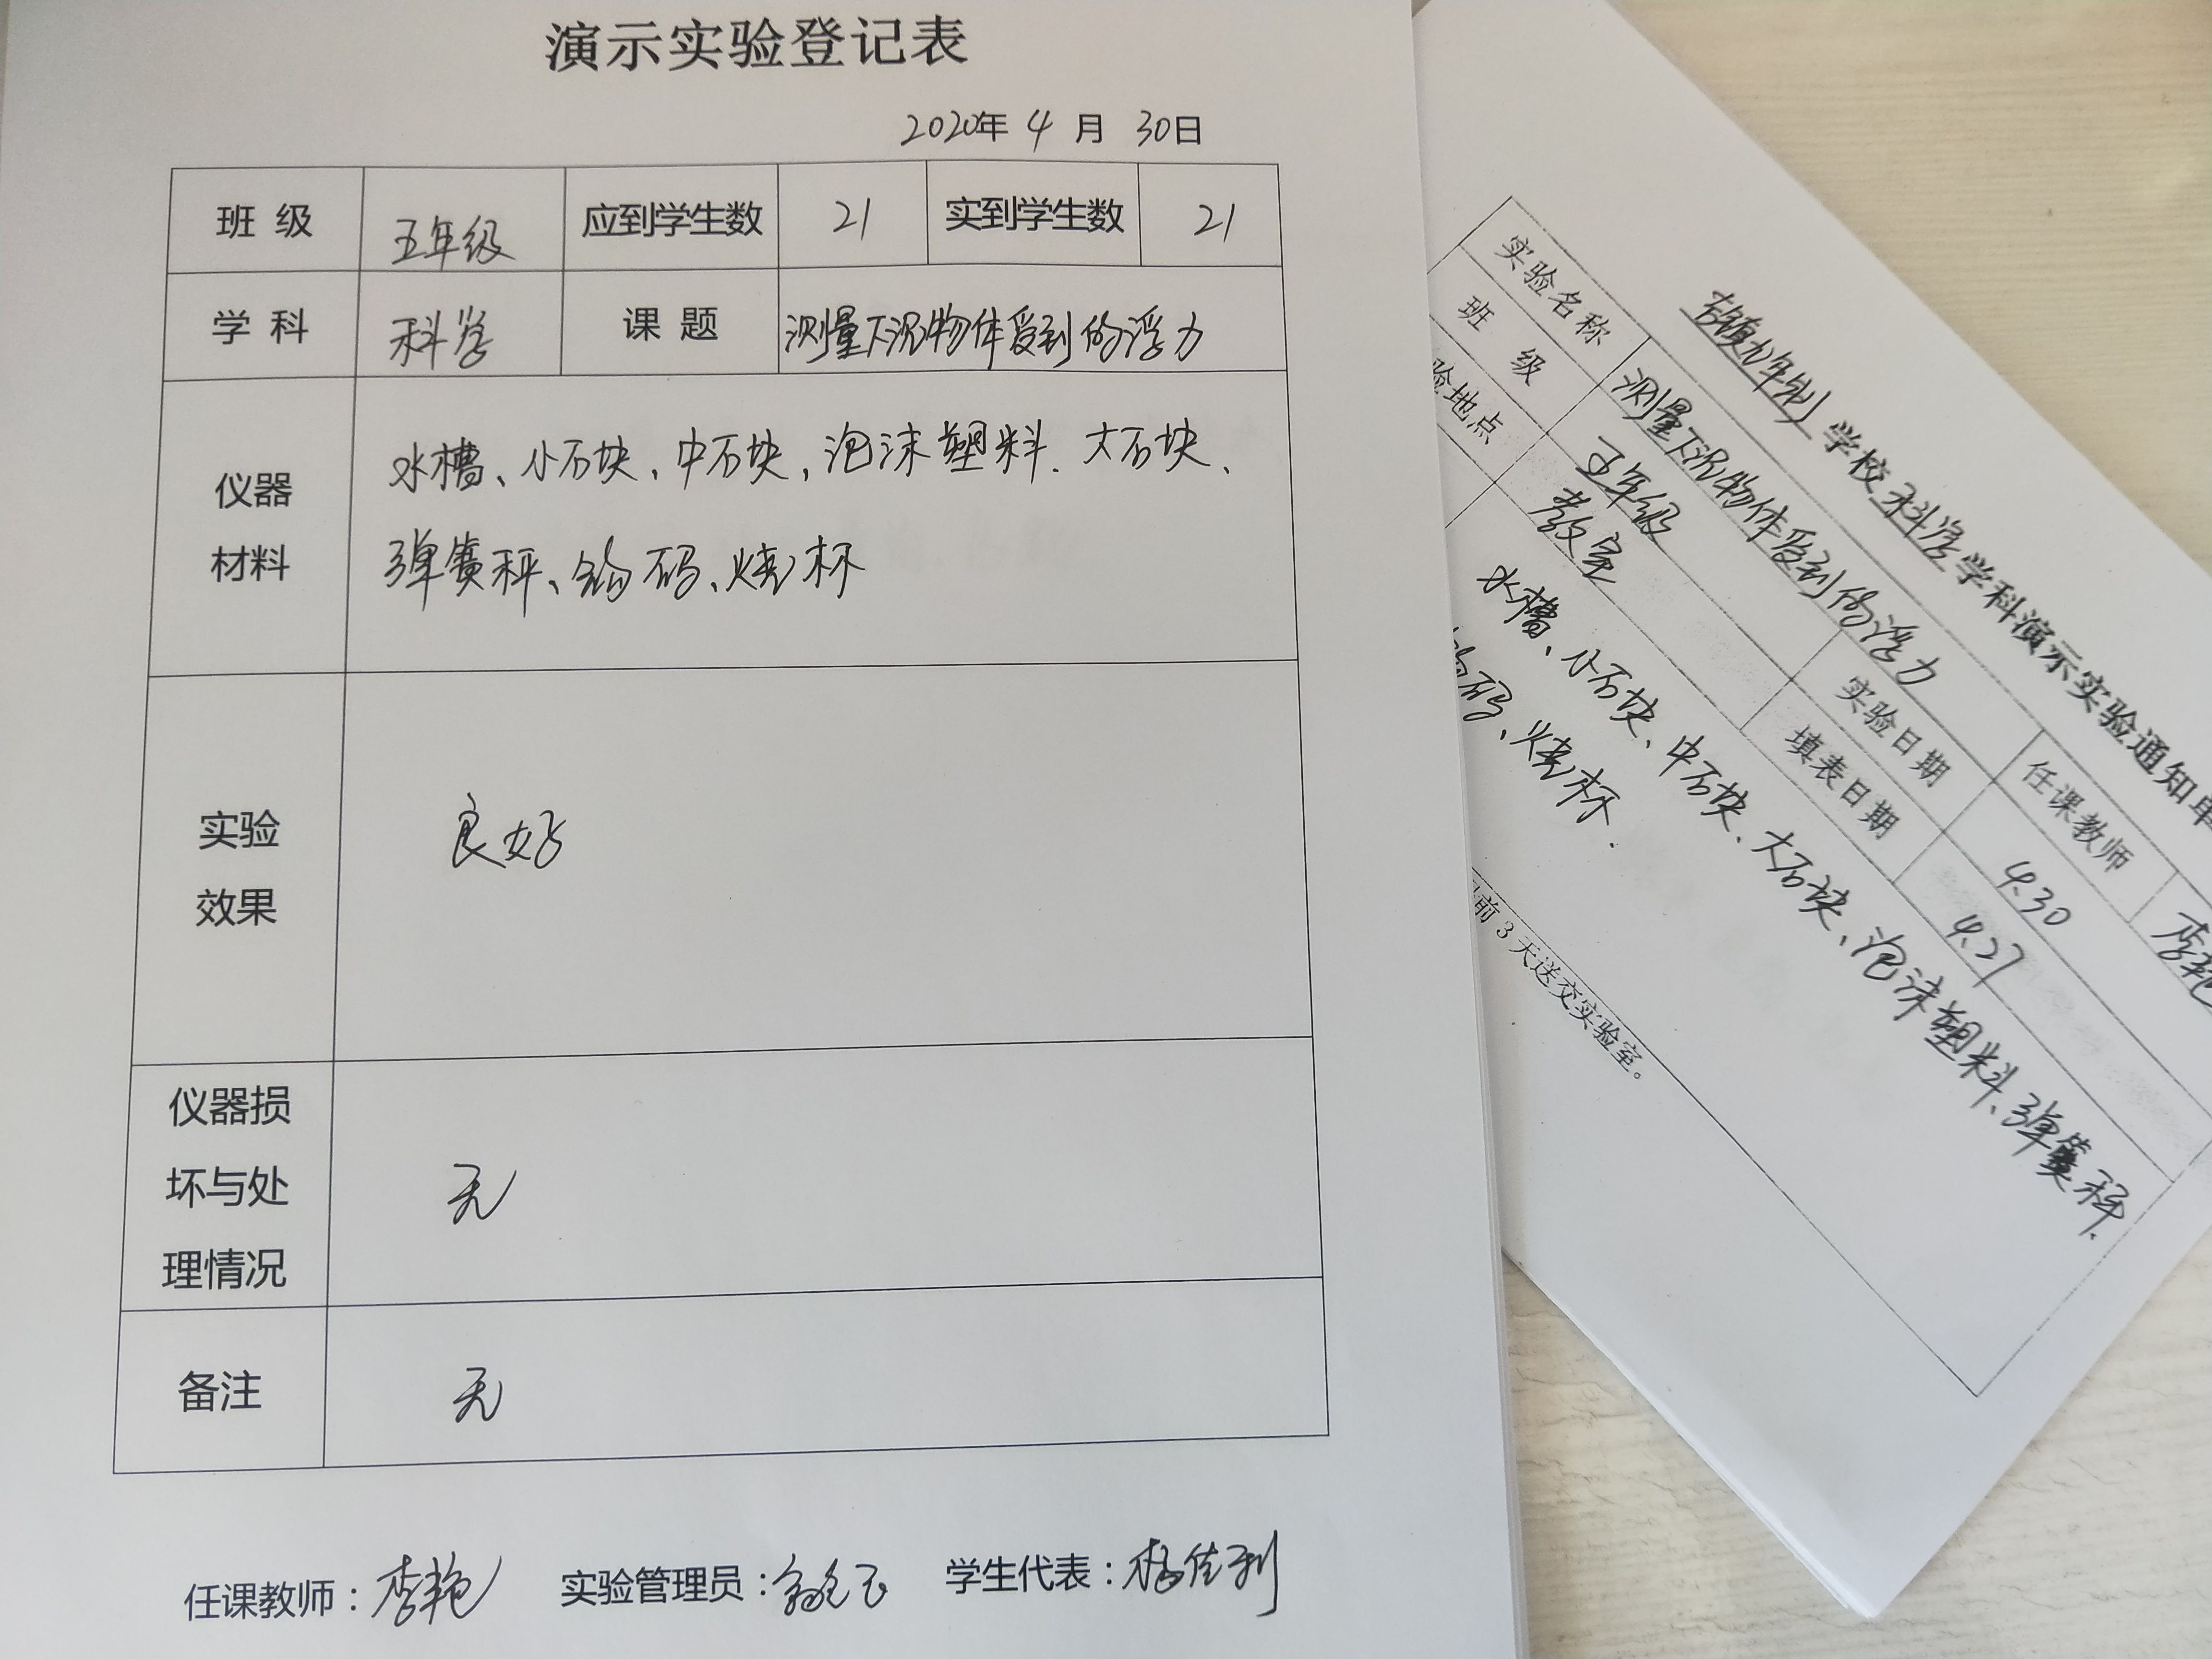 演示实验登记表
2020年 4 月 30日
班 级 五年级 应到学生数 21 实到学生数 21
学 科 科学 课 题 测量下沉物体受到的浮力
仪器
材料
水槽、小石块、中石块、泡沫塑料、大石块、
弹簧秤、钩码、烧杯
实验
效果
良好
仪器损
坏与处
理情况
无
备注 无
任课教师：李艳 实验管理员： 学生代表：杨佳利
学校科学学科演示实验通知单
实验名称 测量下沉物体受到的浮力 任课教师 李艳
班 级 五年级 实验日期 4.30
验地点 教室 填表日期 4.27
水槽、小石块、中石块、大石块、泡沫塑料、弹簧秤、
钩码、烧杯.
前 3 天送交实验室。